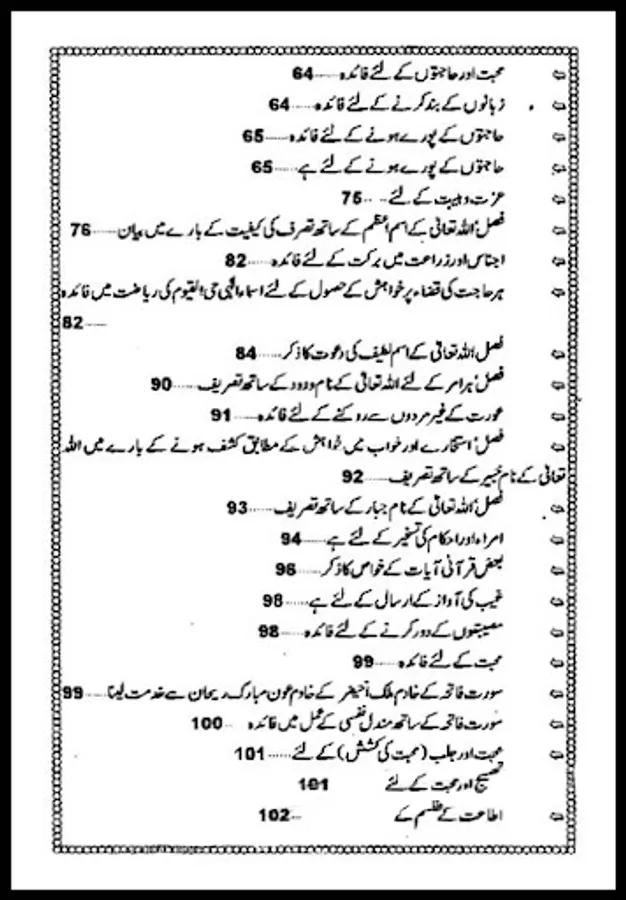 محبت اور حاجتوں کے لئے فائدہ.....64
زبانوں کے بند کرنے کے لئے فائدہ.....64
حاجتوں کے پورے ہونے کے لئے فائدہ.....65
حاجتوں کے پورے ہونے کے لئے ہے.....65
عزت وہیبت کے لئے.....75
فصل: اللہ تعالیٰ کے اسم اعظم کے ساتھ تصرف کی کیفیت کے بارے میں بیان.....76
اجناس اور زراعت میں برکت کے لئے فائدہ.....82
ہر حاجت کی قضاء پر خواہش کے حصول کے لئے اسماء الٰہی حی القیوم کی ریاضت میں فائدہ
.....82
فصل: اللہ تعالیٰ کے اسم لطیف کی دعوت کا ذکر.....84
فصل: ہر امر کے لئے اللہ تعالیٰ کے نام ودود کے ساتھ تصریف.....90
عورت کے غیر مردوں سے روکنے کے لئے فائدہ.....91
فصل: استخارے اور خواب میں خواہش کے مطابق کشف ہونے کے بارے میں اللہ
تعالیٰ کے نام خبیر کے ساتھ تصریف.....92
فصل: اللہ تعالیٰ کے نام جبار کے ساتھ تصریف.....93
امراء اور احکام کی تسخیر کے لئے ہے.....94
بعض قرآنی آیات کے خواص کا ذکر.....96
غیب کی آواز کے ارسال کے لئے ہے.....98
مصیبتوں کے دور کرنے کے لئے فائدہ.....98
محبت کے لئے فائدہ.....99
سورت فاتحہ کے خادم ملک کے خادم عون مبارک ریحان سے خدمت لینا.....99
سورت فاتحہ کے ساتھ مندل نفسی کے عمل میں فائدہ.....100
محبت اور جلب (محبت کی کشش) کے لئے.....101
تصحیح اور محبت کے لئے 101
اطاعت کے طلسم کے ...102